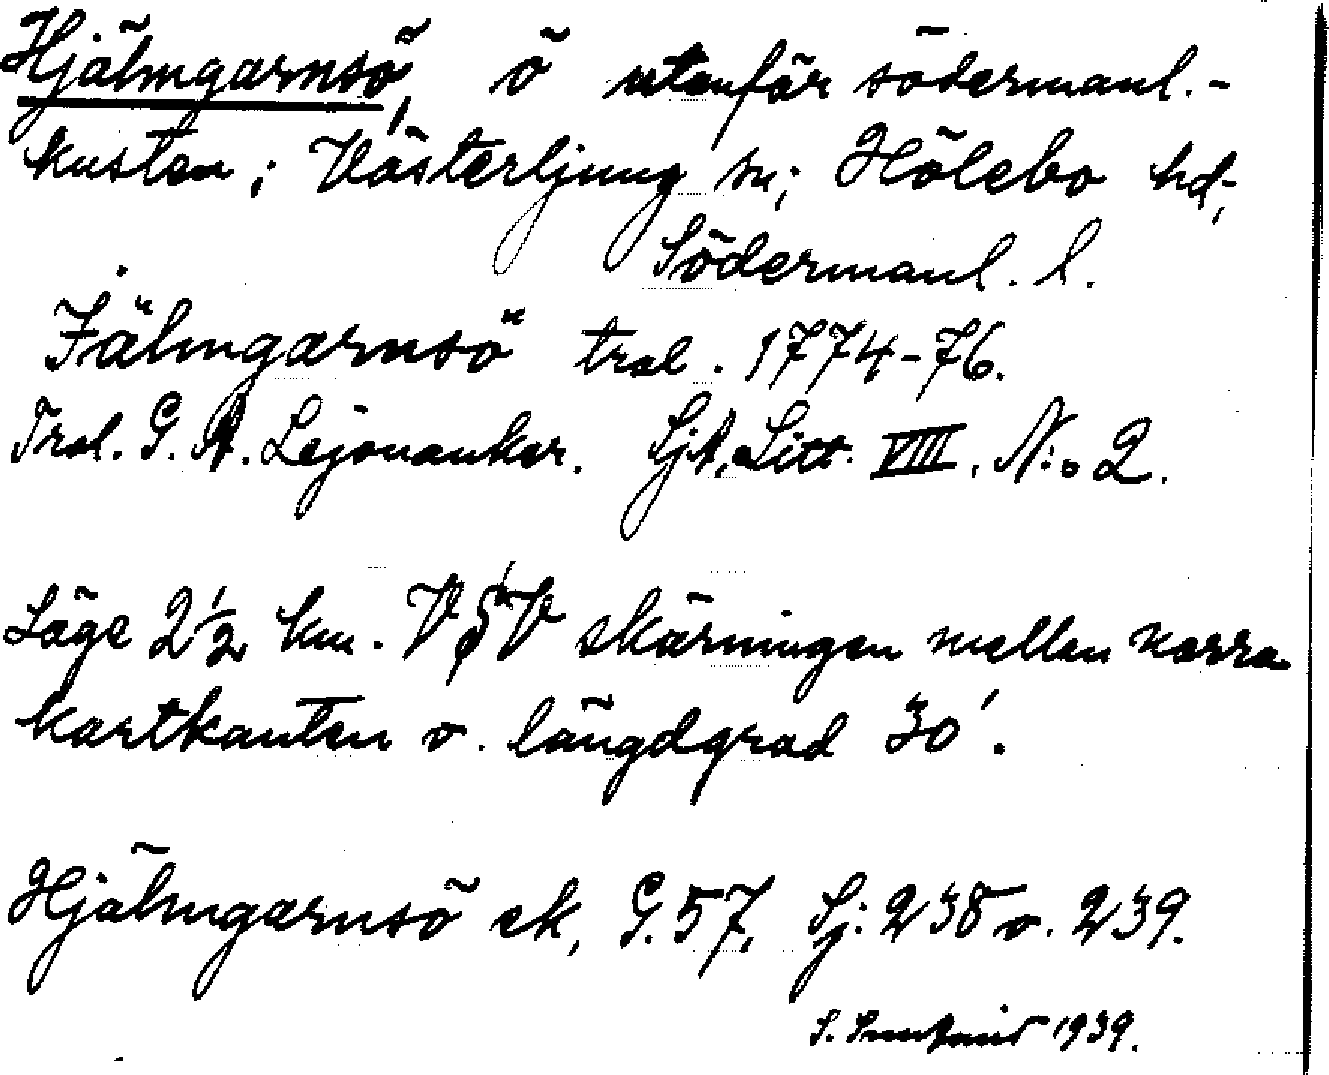 Hjälmgarnsö, ö utanför södermanl.-
kusten; Västerljung sn; Hölebo hd,
Södermanl. l.
Jälmgarnsö trol. 1774-76.
Trol. G. A. Lejonanker. SjA, Litt. VIII. N:o 2.
Läge 2½ km. V§V skärningen mellan norra
kartkanten o. längdgrad 30'.
Hjälmgarnsö ek, G. 57, Sj: 238 o. 239.
S. 1939.